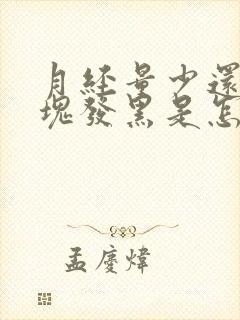 月経量少還
塊發黑是怎
孟慶煒